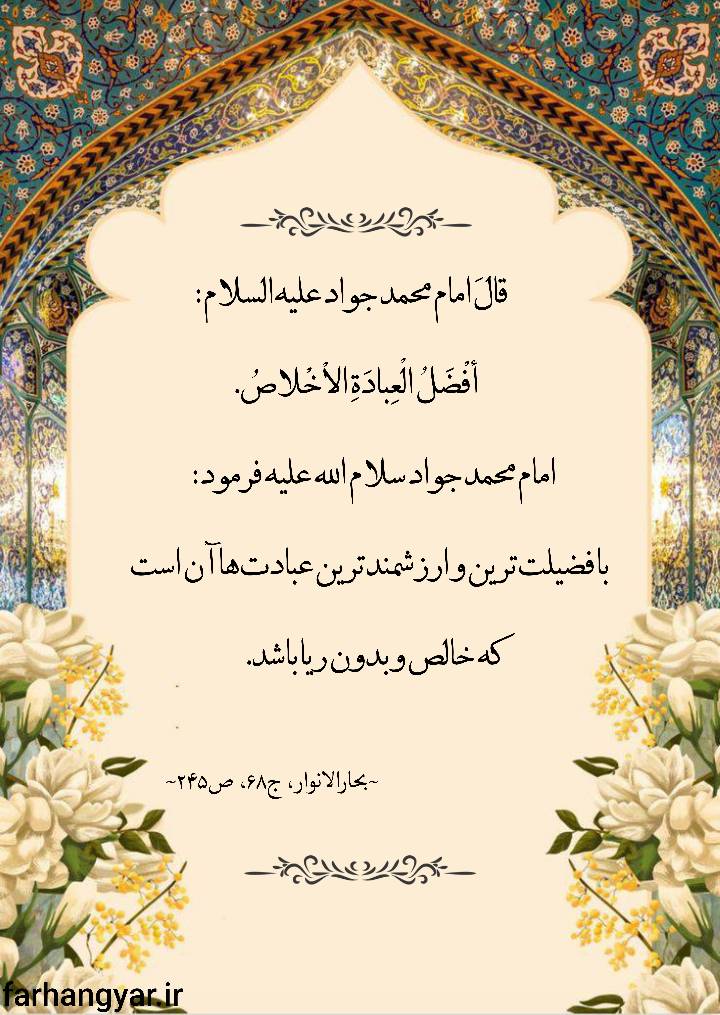 قالَ امام محمد جواد علیه السلام:
أفْضَلُ الْعِبادَةِ الاْخْلاصُ.
امام محمد جواد سلام الله علیه فرمود:
با فضیلت ترین و ارزشمندترین عبادت ها آن است
که خالص و بدون ریا باشد.
~بحارالانوار، ج۶۸، ص۲۴۵~
farhangyar.ir